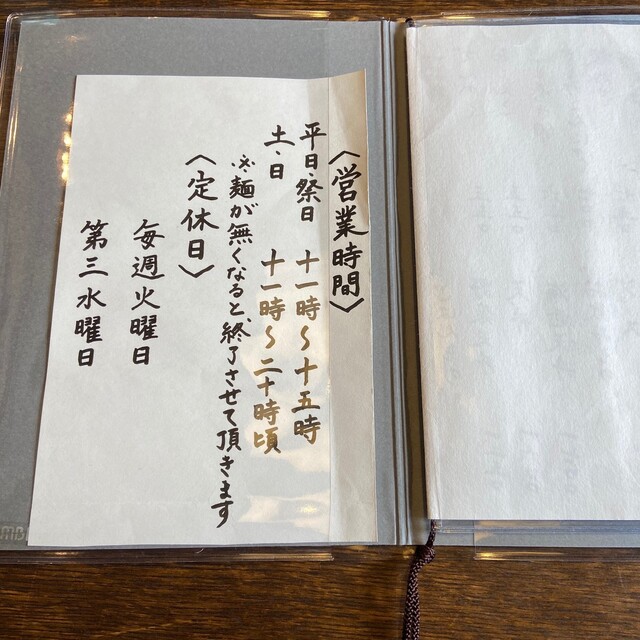 〈営業時間〉
平日・祭日 十一時〜十五時
土・日 十一時〜二十時頃
※麺が無くなると、終了させて頂きます
〈定休日〉
毎週火曜日
第三水曜日